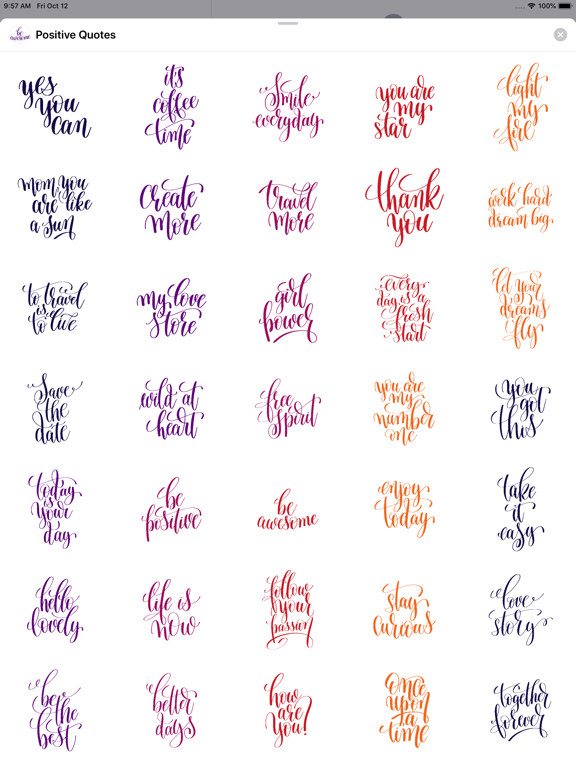 9:57 AM Fri Oct 12
100%
be
awesome
Positive Quotes
yes
you
can
it's
coffee
time
Smile
everyday
you are
my
star
light
my
fire
mom, you
are like
a sun
Create
More
travel
more
thank
you
work hard
dream big
to travel
is
to live
my love
store
girl
power
every
day is a
fresh
start
let your
dreams
fly
Save
the
date
wild at
heart
free
Spirit
you are
my
number
one
you
got
this
today
is
your
day
be
positive
be
awesome
enjoy
today
take
it
easy
hello
lovely
life is
now
follow
your
passion
stay
curious
love
story
be
the
best
better
days
how
are
you?
Once
upon
a
time
together
forever